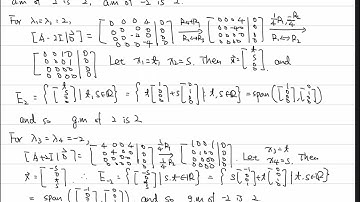 am of 2 is 2, am of -2 is 2.
For λ₁=λ₂=2,
[A-2I|0] = [0 0 0 4 | 0; 0 0 0 | 0; 0 0 -4 | 0; 0 0 0 -4 | 0] R₄+R₁ R₂↔R₃ [0 0 0 4 | 0; 0 0 -4 0 | 0; 0 0 0 0 | 0; 0 0 0 0 | 0] ¼R₁, R₁↔R₂
[0 0 1 0 | 0; 0 0 0 1 | 0; 0 0 0 0 | 0; 0 0 0 0 | 0] Let x₁=t, x₂=s. Then x⃗=[t; s; 0; 0], and
E₂ = {[t; s; 0; 0] | t,s∈ℝ} = {t[1; 0; 0; 0]+s[0; 1; 0; 0] | t,s∈ℝ} = span([1; 0; 0; 0],[0; 1; 0; 0])
and so g.m of 2 is 2
For λ₃=λ₄=-2,
[A+2I|0] = [4 0 0 4 | 0; 0 0 0 | 0; 0 0 0 0 | 0; 0 0 0 0 | 0] ¼R₁ [1 0 0 1 | 0; 0 1 0 | 0; 0 0 0 0 | 0; 0 0 0 0 | 0]. Let x₃=t x₄=s. Then
x⃗ = [-s; t; s] ∴ E₋₂ = {[-s; t; s] | s,t∈ℝ} = {s[-1; 0; 1]+t[0; 1; 0] | t,s∈ℝ}
= span([-1; 0; 1],[0; 1; 0]) and so g.m of -2 is 2